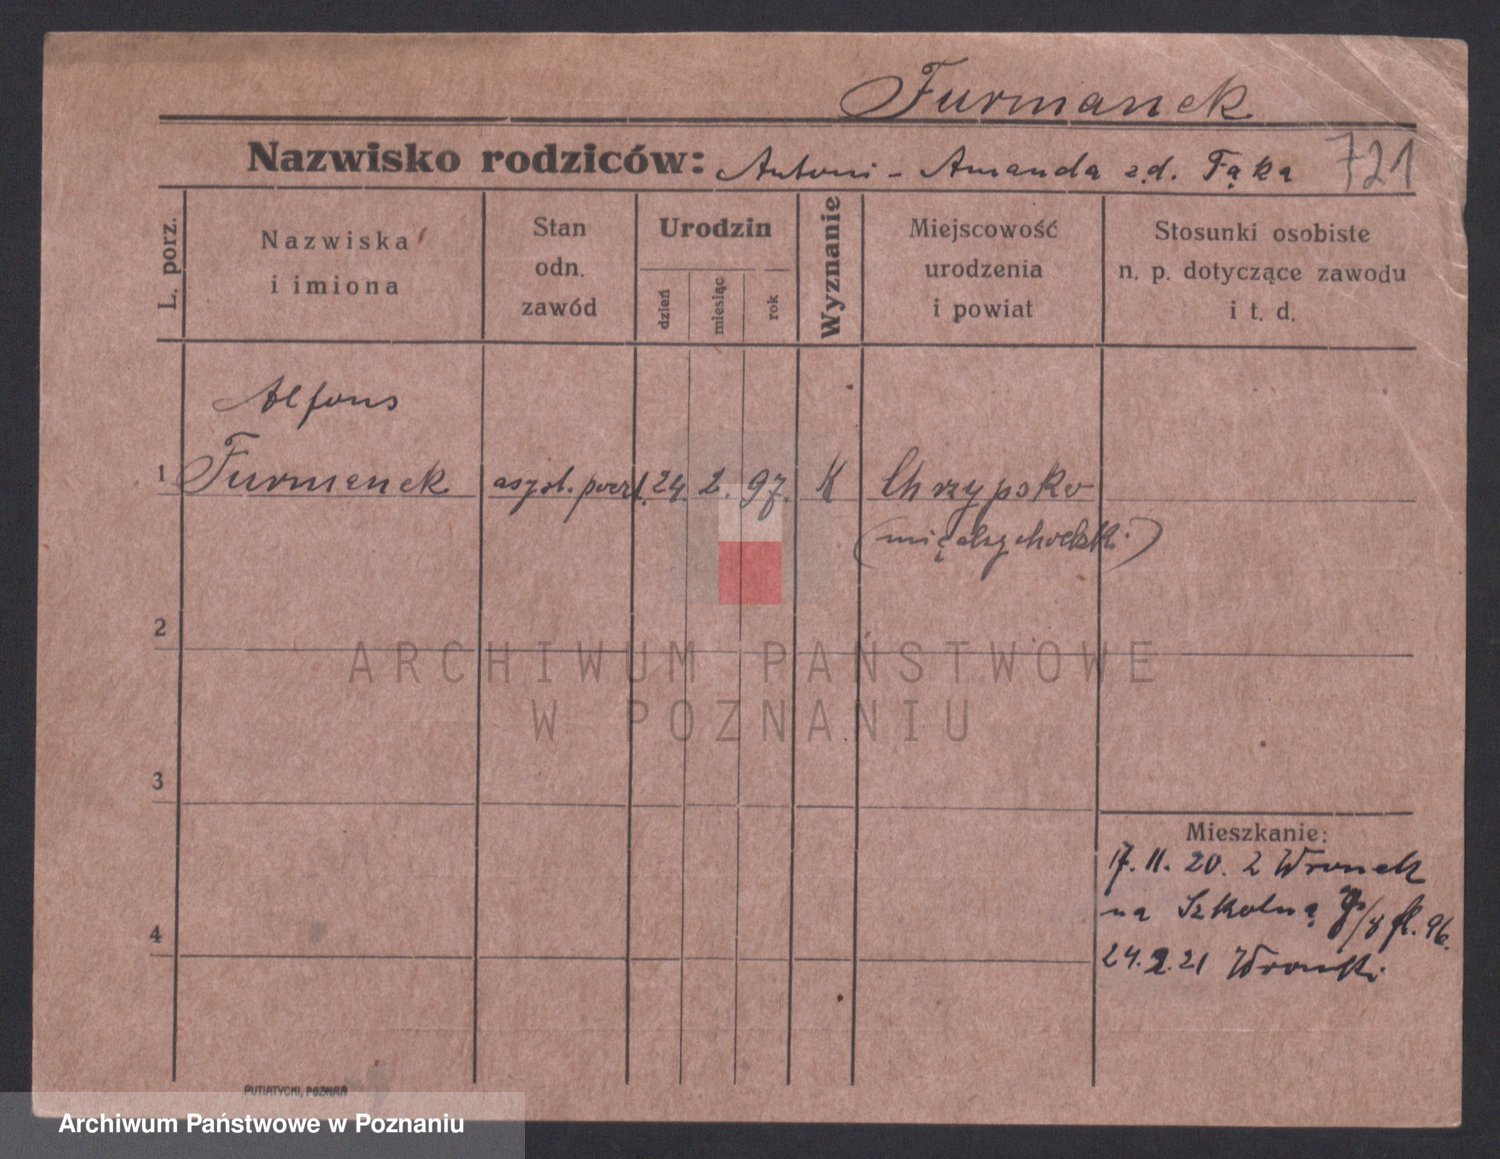 Furmanek
Nazwisko rodziców: Antoni - Amanda z.d. Fąka
721
L. porz.
Nazwiska
i imiona
Stan
odn.
zawód
Urodzin
dzień
miesiąc
rok
Wyznanie
Miejscowość
urodzenia
i powiat
Stosunki osobiste
n. p. dotyczące zawodu
i t. d.
Alfons
1 Furmanek asyst. poczt. 24. 2. 97. K Chrzypsko
(międzychodzki)
2
ARCHIWUM PAŃSTWOWE
W POZNANIU
3
Mieszkanie:
17. 11. 20. z Wronek
na Szkolną /8 fl. 96.
4
24.2.21 Wronki
PUTIATYCKI, POZNAŃ
Archiwum Państwowe w Poznaniu